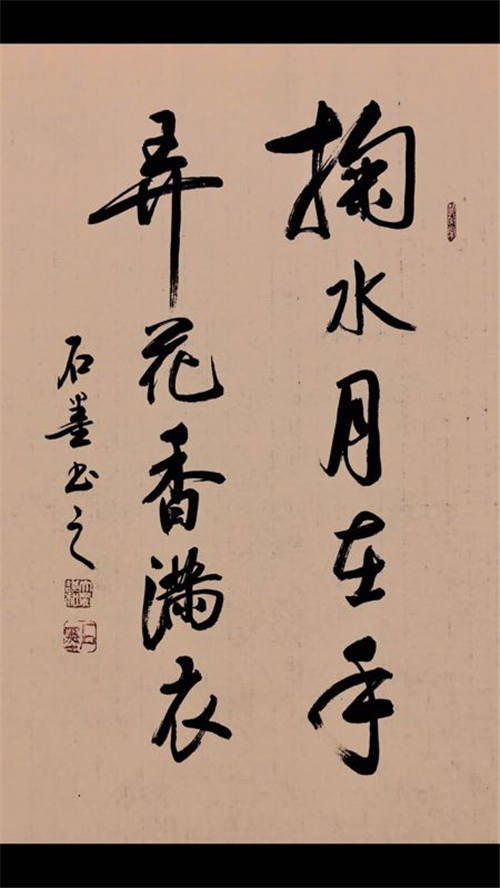 掬水月在手
弄花香满衣
石墨书之